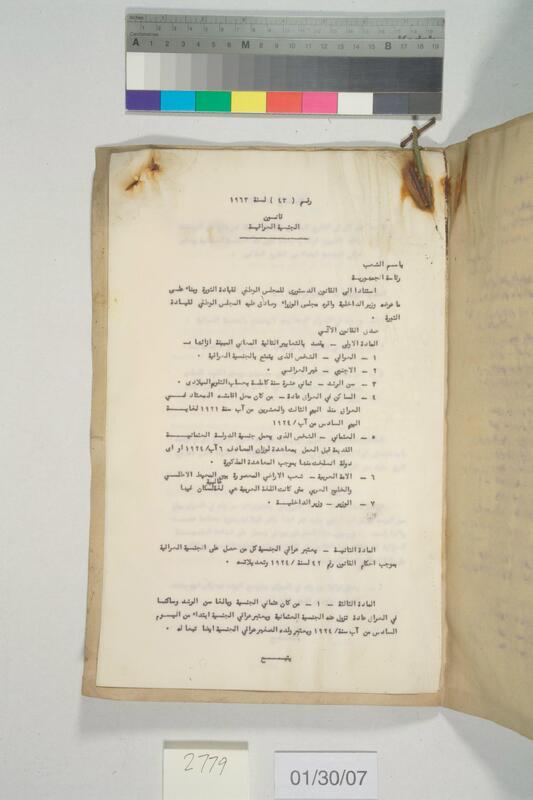 رقم ( ٤٣ ) لسنة ١٩٦٣
قانون
الجنسية العراقية
باسم الشعب
رئاسة الجمهورية
استنادا الى القانون الدستورى للمجلس الوطني لقيادة الثورة وبناء على
ما عرضه وزير الداخلية واقره مجلس الوزراء وصادق عليه المجلس الوطني لقيادة
الثورة ٠
صدق القانون الآتي
المادة الاولى - يقصد بالتعابير التالية المعاني المبينة ازائها :-
١ - العراقي - الشخص الذى يتمتع بالجنسية العراقية ٠
٢ - الاجنبي - غير العراقي ٠
٣ - سن الرشد - ثماني عشرة سنة كاملة بحساب التقويم الميلادى ٠
٤ - الساكن في العراق عادة - من كان محل اقامته المعتاد في
العراق منذ اليوم الثالث والعشرين من آب سنة ١٩٢١ لغاية
اليوم السادس من آب/ ١٩٢٤
٥ - العثماني - الشخص الذى يحمل جنسية الدولة العثمانية
القديمة قبل العمل بمعاهدة لوزان المصادف ٦ آب/١٩٢٤ او اى
دولة انسلخت منها بموجب المعاهدة المذكورة ٠
٦ - الامة العربية - شعب الاراضي المحصورة بين المحيط الاطلسي
والخليج العربي متى كانت اللغة العربية هي لغة غالبية السكان فيها
٧ - الوزير - وزير الداخلية ٠
المادة الثانية - يعتبر عراقي الجنسية كل من حصل على الجنسية العراقية
بموجب احكام القانون رقم ٤٢ لسنة / ١٩٢٤ وتعديلاته ٠
المادة الثالثة - ١ - من كان عثماني الجنسية وبالغا سن الرشد وساكنا
في العراق عادة تزول عنه الجنسية العثمانية ويعتبر عراقي الجنسية ابتداء من اليوم
السادس من آب سنة/ ١٩٢٤ ويعتبر ولده الصغير عراقي الجنسية ايضا تبعا له ٠
يتبع
2779
01/30/07